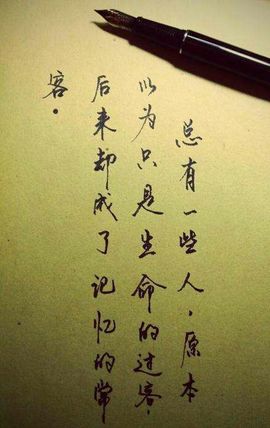 总有一些人，原本
以为只是生命的过客，
后来却成了记忆的常
客。